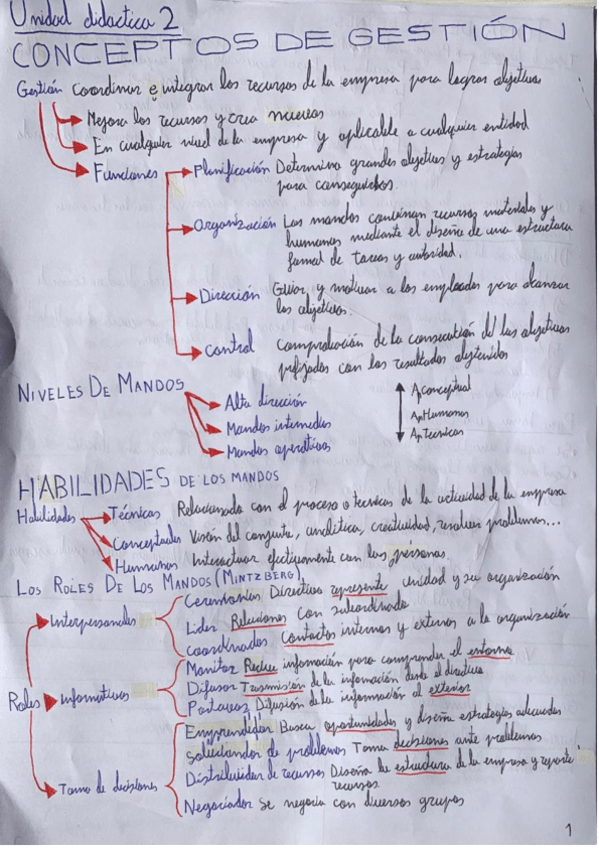 Unidad didactica 2
CONCEPTOS DE GESTIÓN
Gestión coordinar e integrar los recursos de la empresa para lograr objetivos
Mejora los recursos y crea nuevos
En cualquier nivel de la empresa y aplicable a cualquier entidad
Funciones Planificación Determina grandes objetivos y estrategias
para conseguirlos
Organización Los mandos combinan recursos materiales y
humanos mediante el diseño de una estructura
formal de tareas y autoridad.
Dirección Guiar y motivar a los empleados para alcanzar
los objetivos.
control comprobación de la consecución del los objetivos
prefijados con los resultados obtenidos
NIVELES DE MANDOS
Alta dirección
Mandos intermedios
Mandos operativos
Ap conceptual
Ap Humanas
Ap Técnicas
HABILIDADES DE LOS MANDOS
Habilidades Técnicas Relacionada con el proceso o técnicas de la actividad de la empresa
Conceptuales Visión del conjunto, analítica, creatividad, resolver problemas...
Humanas Interactuar efectivamente con las personas.
LOS ROLES DE LOS MANDOS (MINTZBERG)
Roles
Interpersonales
Ceremonias Directivo represente unidad y su organización
Lider Relaciones con subordinado
coordinados Contactos internos y externos a la organización
Informativos
Monitor Reclue información para comprender el entorno
Difusor Trasmisión de la información desde el directivo
Portavoz Difusión de la información al exterior
Toma de decisiones
Emprendedor Busca oportunidades y diseña estrategias adecuadas
Solucionandor de problemas Toma decisiones ante problemas
Distribuidor de recursos Diseña la estructura de la empresa y reparte
recursos
Negociador se negocia con diversos grupos
1